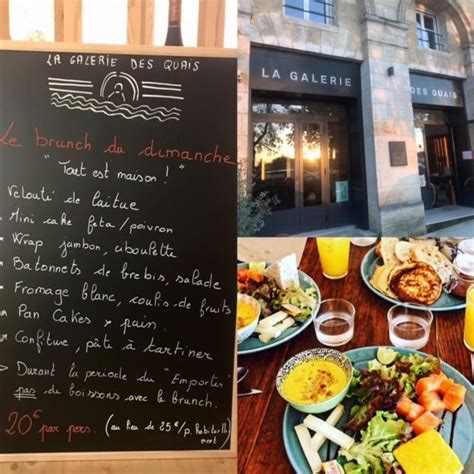 LA GALERIE DES QUAIS
Le brunch du dimanche
"Tout est maison !"
Velouti de laitue
• Mini cake feta/poivron
• Wrap jambon, ciboulette
• Batonnets de brebis, salade
• Fromage blanc, coulis de fruits
• Pan Cakes x pain.
• Confiture, pâte à tartiner
• Durant la periode du "Emporter"
pas de boissons avec le brunch.
20€ par pers. (au lieu de 25€/p. habituelle
ment)
LA GALERIE
DES QUAIS